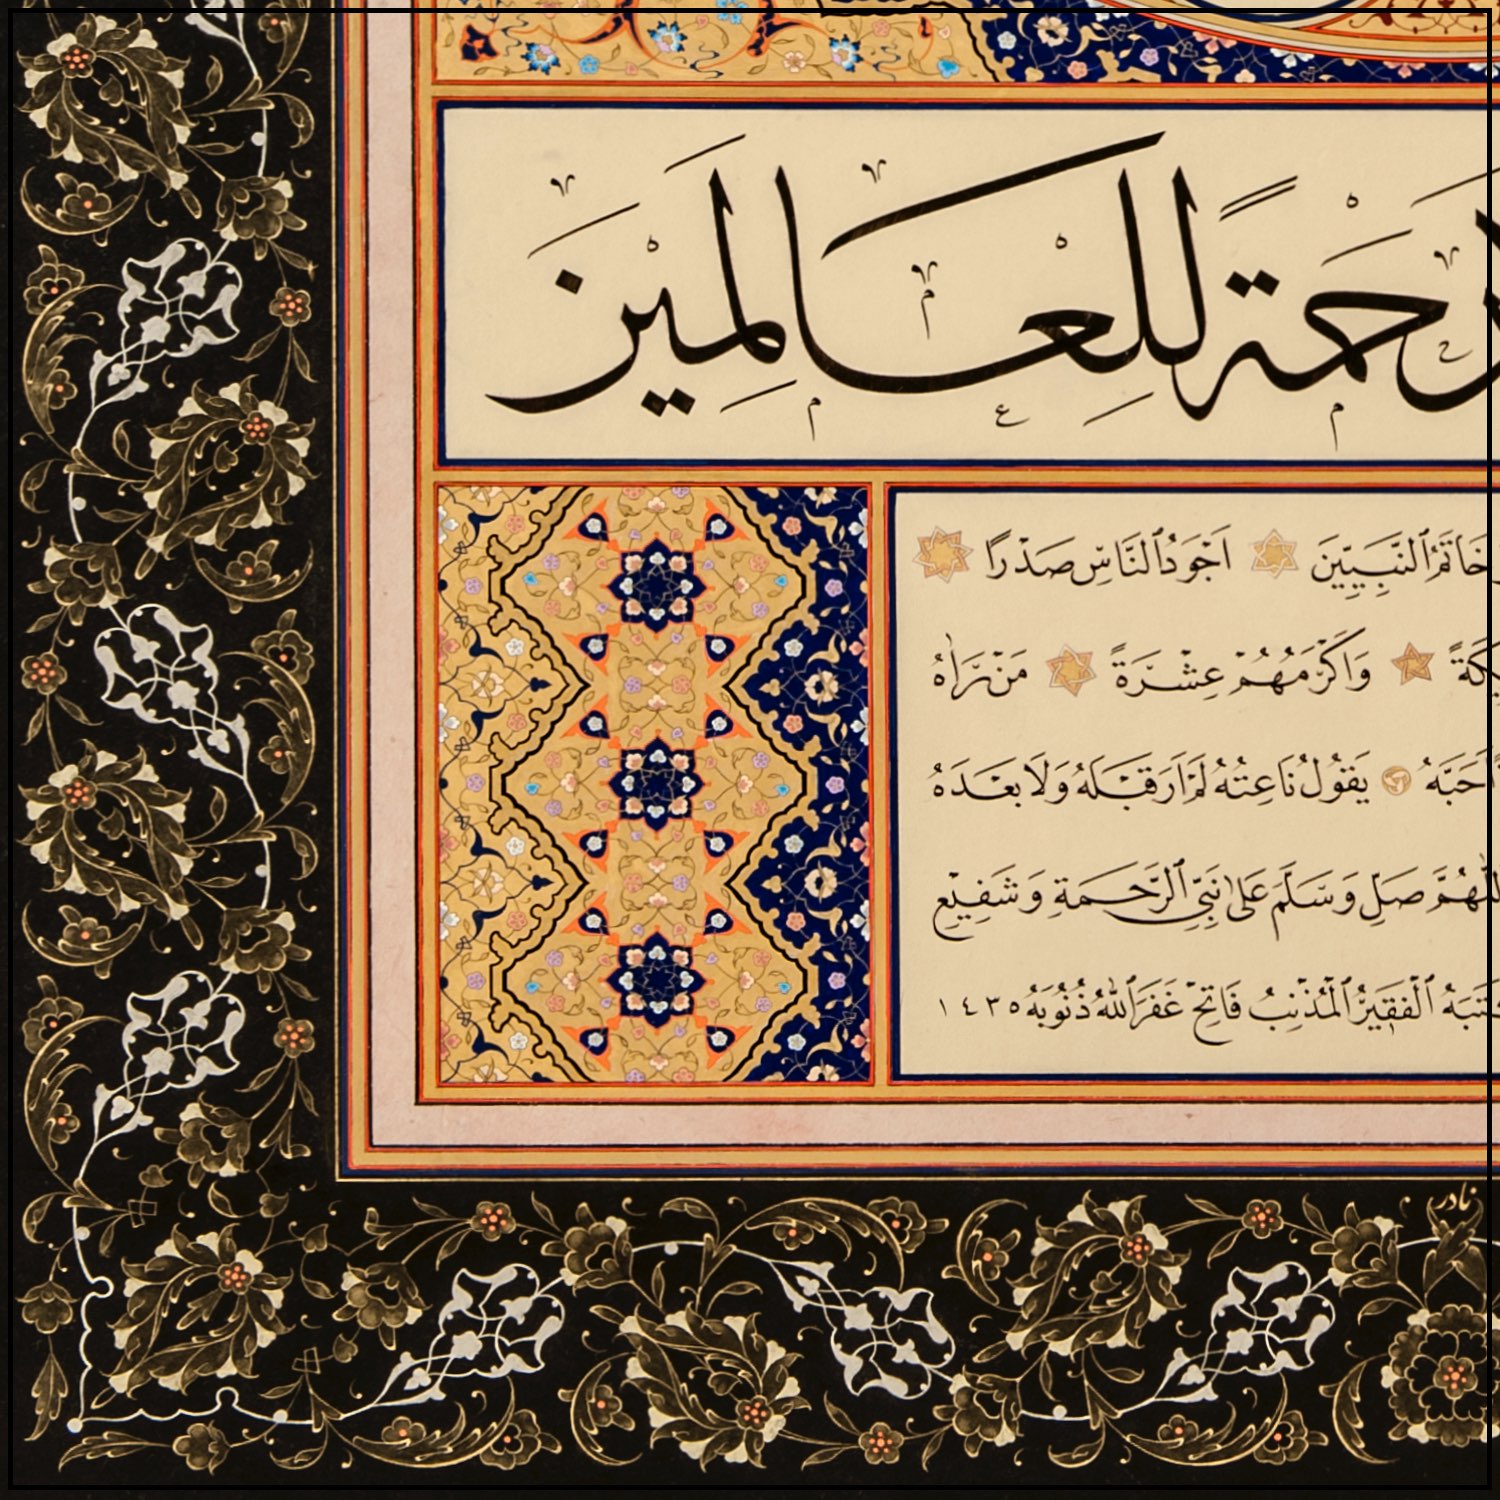 رَحْمَةً لِلْعَالَمِيْنَ
خَاتَمُ ٱلنَّبِيِّينَ اَجْوَدُ ٱلنَّاسِ صَدْرًا
وَاَكْرَمُهُمْ عِشْرَةً مَنْ رَاٰهُ
اَحَبَّهُ يَقُولُ نَاعِتُهُ لَمْ اَرَ قَبْلَهُ وَلَا بَعْدَهُ
اَللّٰهُمَّ صَلِّ وَسَلِّمْ عَلٰى نَبِيِّ ٱلرَّحْمَةِ وَشَفِيْعِ
كَتَبَهُ ٱلْفَقِيْرُ ٱلْمُذْنِبُ فَاتِحْ غَفَرَ ٱللّٰهُ ذُنُوبَهُ ١٤٣٥
نادر